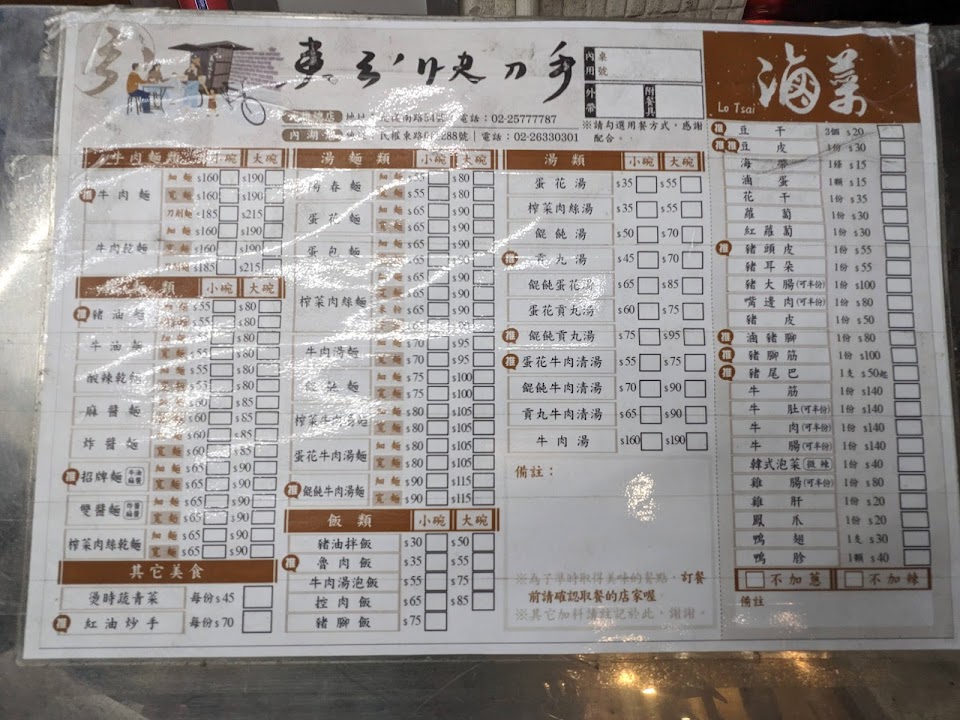 內用 桌號
外帶 附餐具
※請勾選用餐方式，感謝配合。
店 電話：02-25777787
內湖 民權東路 288號 電話：02-26330301
牛肉麵類 小碗 大碗
推 牛肉麵 細麵 $160 $190
寬麵 $160 $190
刀削麵 $185 $215
牛肉乾麵 細麵 $160 $190
寬麵 $160 $190
刀削麵 $185 $215
麵類 小碗 大碗
推 豬油麵 $55 $80
寬麵 $55 $80
牛油麵 細麵 $55 $80
寬麵 $55 $80
酸辣乾麵 細麵 $55 $80
寬麵 $55 $80
麻醬麵 細麵 $60 $85
寬麵 $60 $85
炸醬麵 細麵 $60 $85
寬麵 $60 $85
推 招牌麵 細麵 $65 $90
寬麵 $65 $90
雙醬麵 細麵 $65 $90
寬麵 $65 $90
榨菜肉絲乾麵 細麵 $65 $90
寬麵 $65 $90
其它美食
燙時蔬青菜 每份$45
推 紅油炒手 每份$70
湯麵類 小碗 大碗
陽春麵 細麵 $55 $80
寬麵 $55 $80
蛋花麵 細麵 $65 $90
寬麵 $65 $90
蛋包麵 細麵 $65 $90
寬麵 $65 $90
榨菜肉絲麵 $65 $90
牛肉湯麵 細麵 $70 $95
寬麵 $70 $95
餛飩麵 細麵 $75 $100
寬麵 $75 $100
榨菜牛肉湯麵 細麵 $80 $105
寬麵 $80 $105
蛋花牛肉湯麵 細麵 $80 $105
寬麵 $80 $105
推 餛飩牛肉湯麵 細麵 $90 $115
寬麵 $90 $115
飯類 小碗 大碗
豬油拌飯 $30 $50
推 魯肉飯 $35 $55
牛肉湯泡飯 $55 $75
控肉飯 $65 $85
豬腳飯 $75
湯類 小碗 大碗
蛋花湯 $35 $55
榨菜肉絲湯 $35 $55
餛飩湯 $50 $70
推 貢丸湯 $45 $70
餛飩蛋花湯 $65 $85
蛋花貢丸湯 $60 $75
推 餛飩貢丸湯 $75 $95
推 蛋花牛肉清湯 $55 $75
餛飩牛肉清湯 $70 $90
貢丸牛肉清湯 $65 $90
牛肉湯 $160 $190
備註：
※為了準時取得美味的餐點，訂餐
前請確認取餐的店家喔
※其它加料請註記於此，謝謝。
滷菜
Lo Tsai
推 豆干 3個 $20
推推 豆皮 1份 $30
海帶 1條 $15
滷蛋 1顆 $15
花干 1份 $35
蘿蔔 1份 $30
紅蘿蔔 1份 $30
推 豬頭皮 1份 $55
豬耳朵 1份 $55
豬大腸(可半份) 1份 $100
嘴邊肉(可半份) 1份 $80
豬皮 1份 $50
推 滷豬腳 1份 $80
推 豬腳筋 1份 $100
推 豬尾巴 1支 $50起
牛筋 1份 $140
牛肚(可半份) 1份 $140
牛肉(可半份) 1份 $140
牛腸(可半份) 1份 $140
韓式泡菜(微辣) 1份 $40
雞腸(可半份) 1份 $80
雞肝 1份 $20
鳳爪 1份 $20
鴨翅 1支 $30
鴨胗 1顆 $40
不加蔥 不加辣
備註